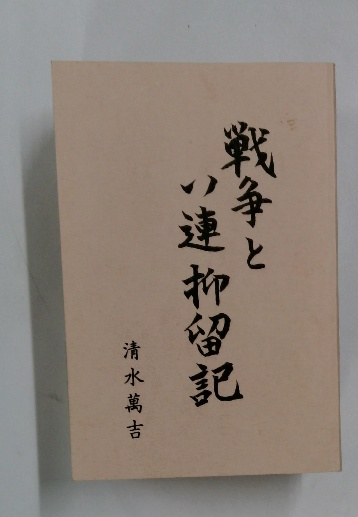 戦争と
ソ連抑留記
清水萬吉